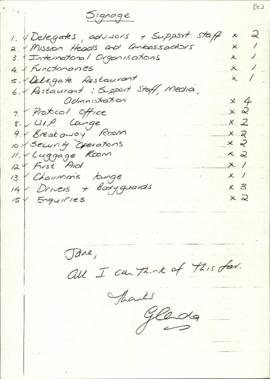 (c)
Signage
1. ✓ Delegates, advisors + Support staff × 2
2. ✓ Mission Heads and Ambassadors × 1
3. ✓ International Organisations × 1
4. ✓ Functionaries × 1
5. ✓ Delegate Restaurant × 1
6. ✓ Restaurant : Support Staff, Media,
Administration × 4
7. ✓ Protocol Office × 2
8. ✓ V.I.P. Lounge × 2
9. ✓ Breakaway Room × 2
10. ✓ Security Operations × 2
11. ✓ Luggage Room × 2
12. ✓ First Aid × 1
13. ✓ Chairman's lounge × 1
14. ✓ Drivers + Bodyguards × 3
15. ✓ Enquiries × 2
Jane,
All I can think of this far.
Thanks
Glenda